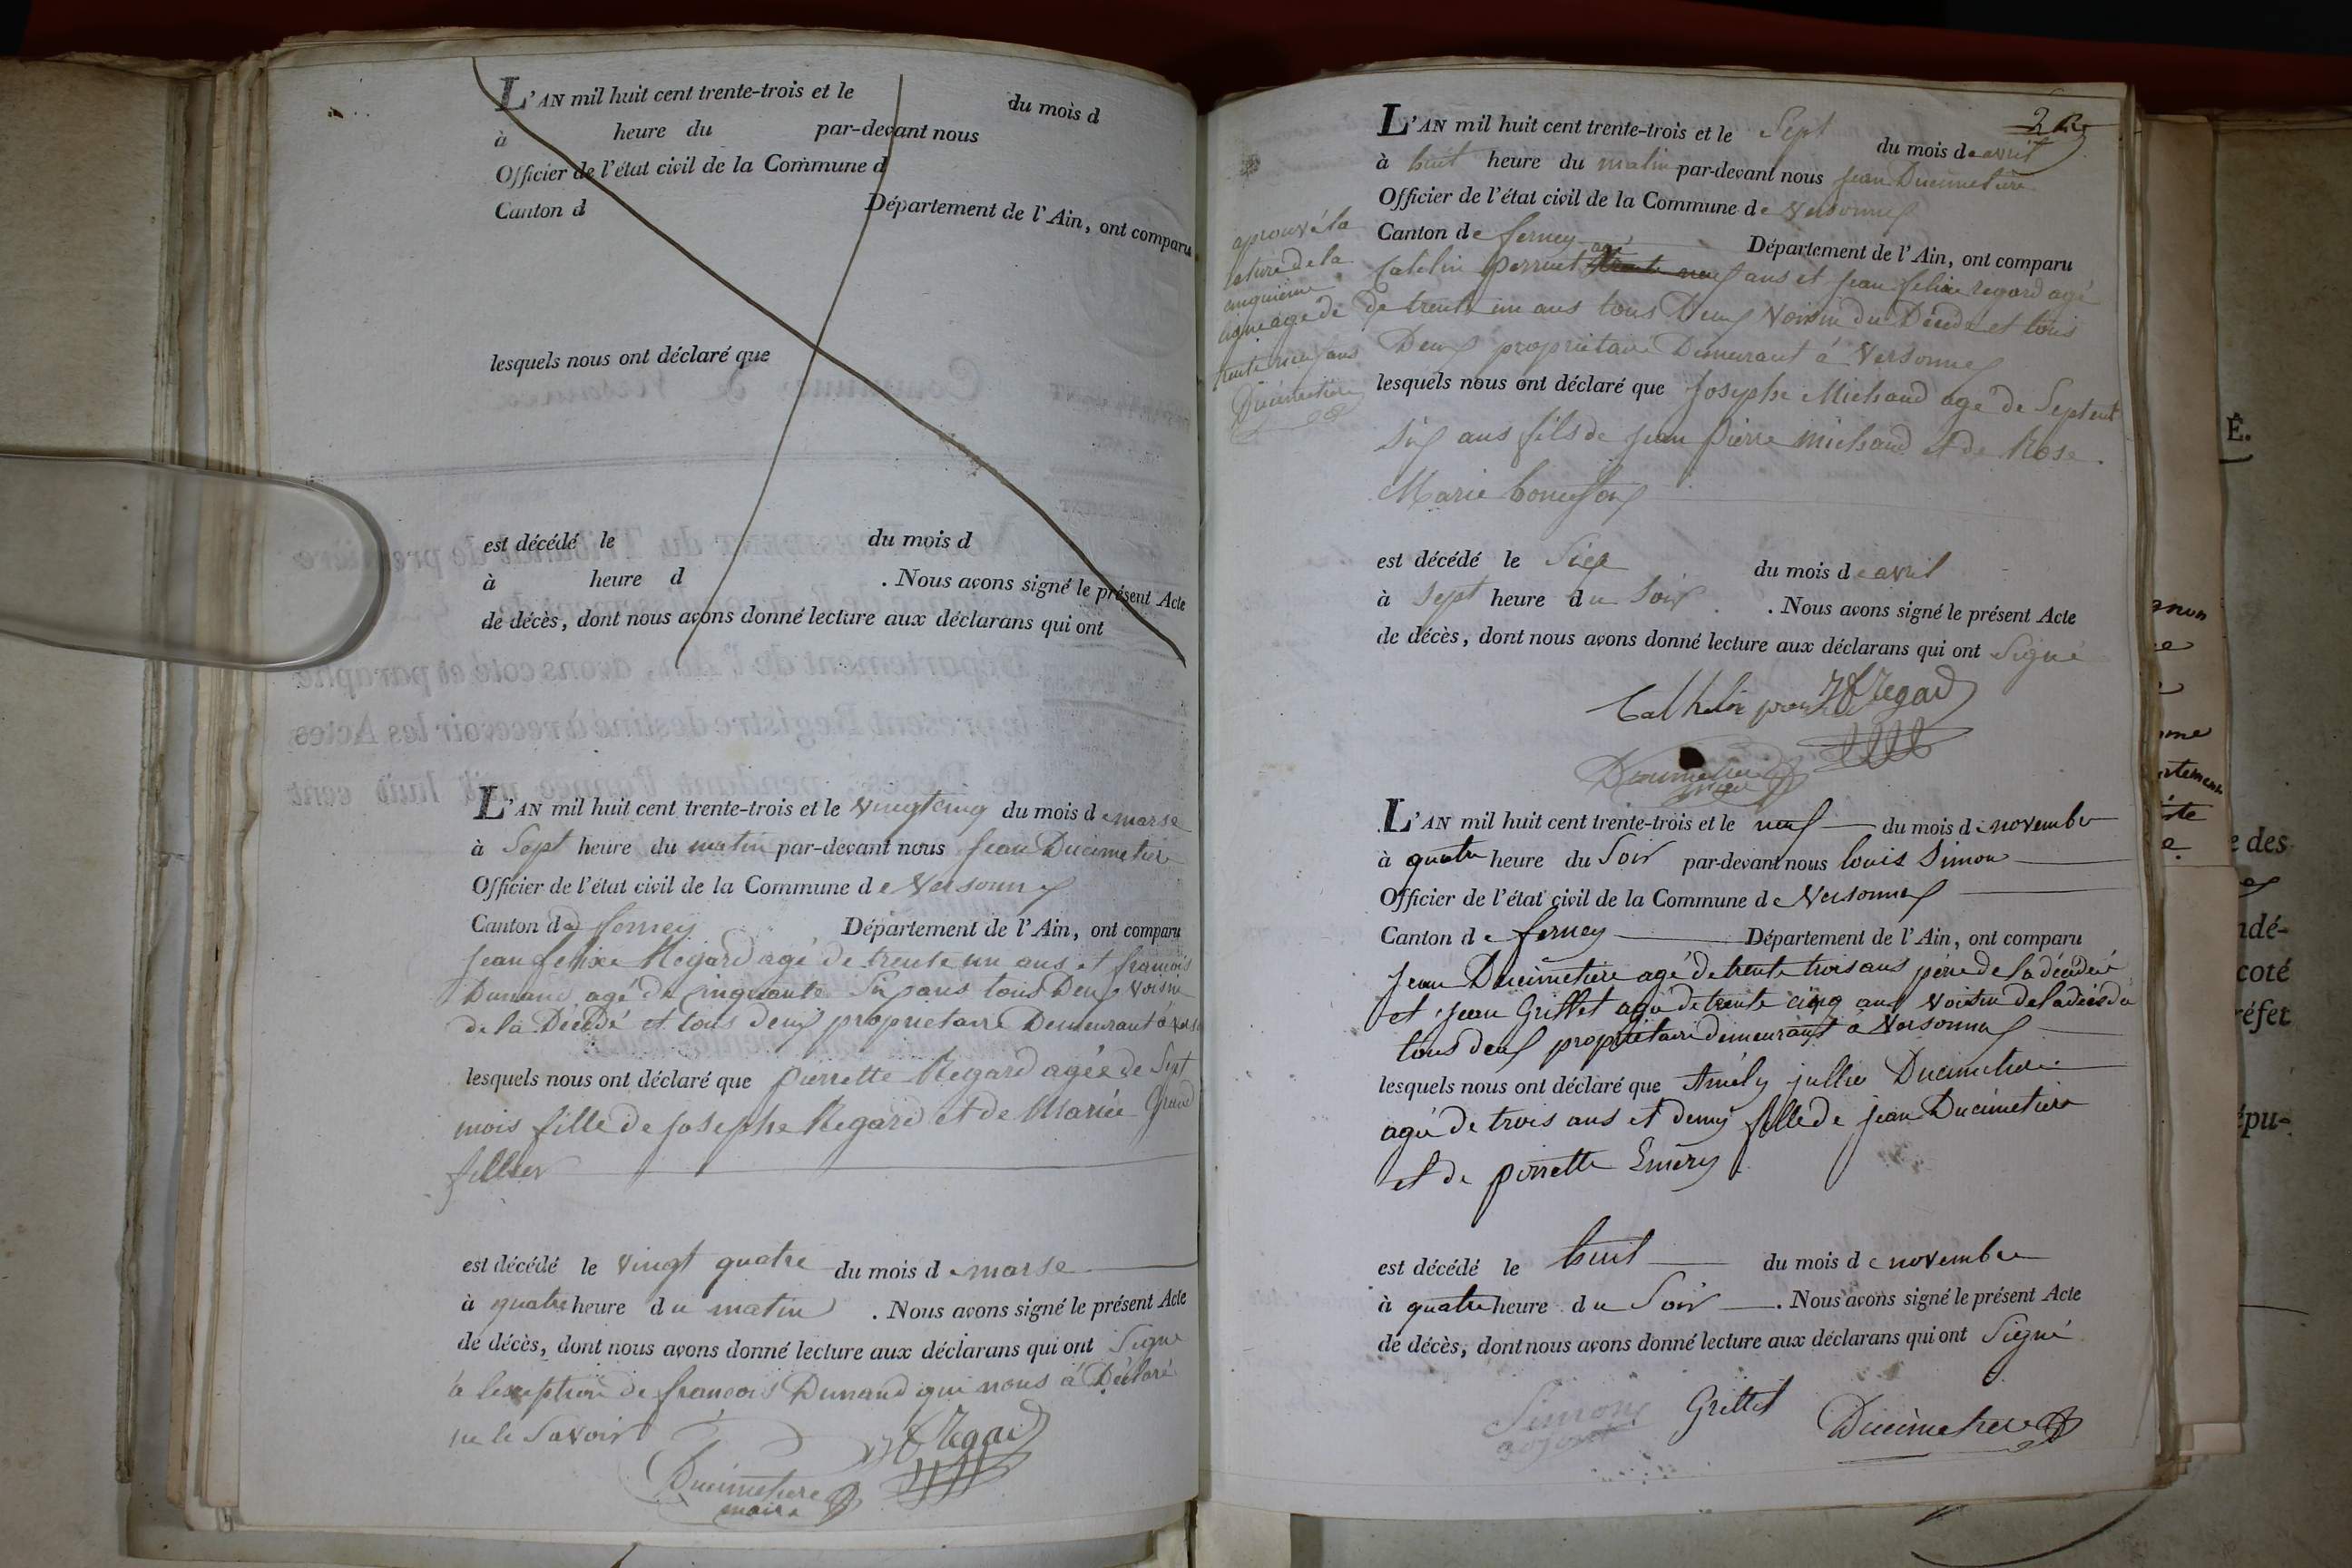 L'AN mil huit cent trente-trois et le du mois d
à heure du par-devant nous
Officier de l'état civil de la Commune d
Canton d Département de l'Ain, ont comparu
lesquels nous ont déclaré que
est décédé le du mois d
à heure d . Nous avons signé le présent Acte
de décès, dont nous avons donné lecture aux déclarans qui ont
L'AN mil huit cent trente-trois et le vingt cinq du mois de marse
à Sept heure du matin par-devant nous Jean Ducimetiere
Officier de l'état civil de la Commune de Versonnex
Canton de ferney Département de l'Ain, ont comparu
Jean felixe Regard agé de trente un ans et francois
Dunand agé de cinquante Six ans tous Deux voisin
de la Décédé et tous deux propriétaire Demeurant à Vers
lesquels nous ont déclaré que pierrette Regard agée de Sept
mois fille de Josephe Regard et de Mariee Grand
fillier
est décédé le vingt quatre du mois de marse
à quatre heure du matin . Nous avons signé le présent Acte
de décès, dont nous avons donné lecture aux déclarans qui ont Signe
à lexeption de francois Dunand qui nous à Déclaré
ne le Savoir
JF Regard
Ducimetiere
maire
2
L'AN mil huit cent trente-trois et le Sept du mois de avril
à huit heure du matin par-devant nous Jean Ducimetiere
Officier de l'état civil de la Commune de Versonnex
Canton de ferney Département de l'Ain, ont comparu
Catelin perruet agé trente neuf ans et Jean felixe Regard agé
de trente un ans tous Deux Voisin du Décédé et tous
Deux propriétaire Demeurant à Versonnex
lesquels nous ont déclaré que Josephe Michaud agé de Septente
Six ans fils de Jean pierre Michaud et de Rose
Marie
aprouvé la
lature de la
cinquieme
ligne age de
trente neuf ans
Ducimetiere
est décédé le Size du mois de avril
à Sept heure du Soir . Nous avons signé le présent Acte
de décès, dont nous avons donné lecture aux déclarans qui ont Signé
Cathelin JF Regard
Ducimetiere
L'AN mil huit cent trente-trois et le neuf du mois de novembre
à quatre heure du Soir par-devant nous louis Simon
Officier de l'état civil de la Commune de Versonnex
Canton de ferney Département de l'Ain, ont comparu
Jean Ducimetiere agé de trente trois ans pére de la décédeé
et Jean Grillet agé de trente cinq ans voisin de la décédé
tous deux propriétaire demeurant à Versonnex
lesquels nous ont déclaré que Amély jullie Ducimetiere
agée de trois ans et demy fille de jean Ducimetiere
et de pierrette Emery
est décédé le huit du mois de novembre
à quatre heure du Soir . Nous avons signé le présent Acte
de décès, dont nous avons donné lecture aux déclarans qui ont Signé
Simon Grillet Ducimetiere
adjoint
É.
e des
ndé-
coté
réfet
épu-